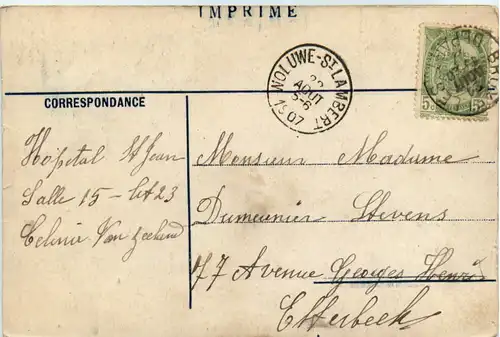 IMPRIMÉ
CORRESPONDANCE
WOLUWE-ST-LAMBERT
22
AOUT
5-6
1907
Hôpital St Jean
Salle 15 – lit 23
Celinie Van Zeeland
Monsieur Madame
Dumeunier Stevens
77 Avenue Georges Henri
Etterbeek